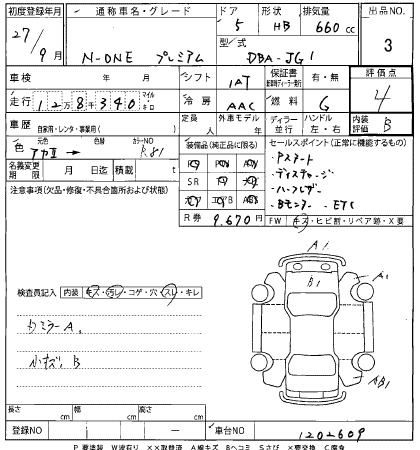 初度登録年月 通称車名・グレード ドア 形状 排気量 出品NO
27/9月 N-ONE プレミアム 5 HB 660cc 3
型式 DBA-JG1
車検 年 月 シフト IAT 保証書 有・無 評価点
走行 12万8千340 マイル キロ 冷房 AAC 燃料 G 4
車歴 自家用・レンタ・事業用( ) 定員 人 外車モデル 年 ディーラー 並行 ハンドル 左・右 内装評価 B
色 元色 アカII → 色替 カラーNO R81 装備品(純正品に限る) セールスポイント(正常に機能するもの)
名義変更期限 月 日迄 積載 t SR
・Pスタート
・ディスチャージ
・ハーフレザー
・Bモニター ・ETC
注意事項(欠品・修復・不具合箇所および状態) R券 9,670円 FW キズ・ヒビ割・リペア跡・X要
A1
検査員記入 内装 キズ・汚レ・コゲ・穴・スレ・キレ B1 A1
カミラーA、
小キズ、B AB1
長さ cm 幅 cm 高さ cm
登録NO － 車台NO 1202609
P要塗装 W波有り XX取替済 A線キズ Bヘコミ Sさび X要交換 C腐食